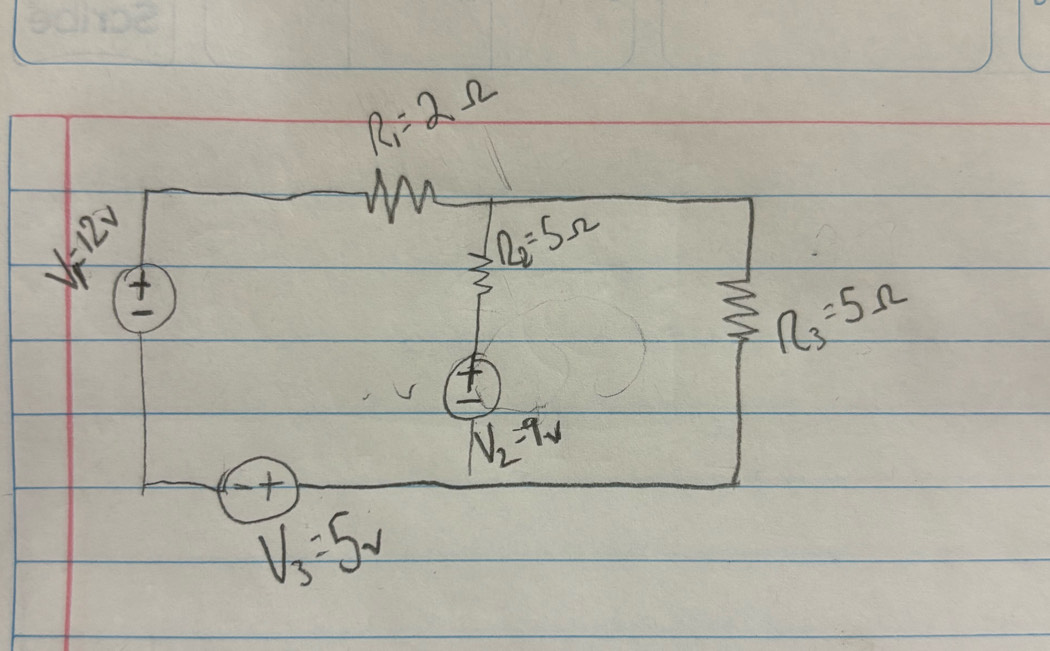 Scribe
R₁=2Ω
V₁=12v
+
-
R₂=5Ω
R₃=5Ω
+
-
V₂=9v
- +
V₃=5v